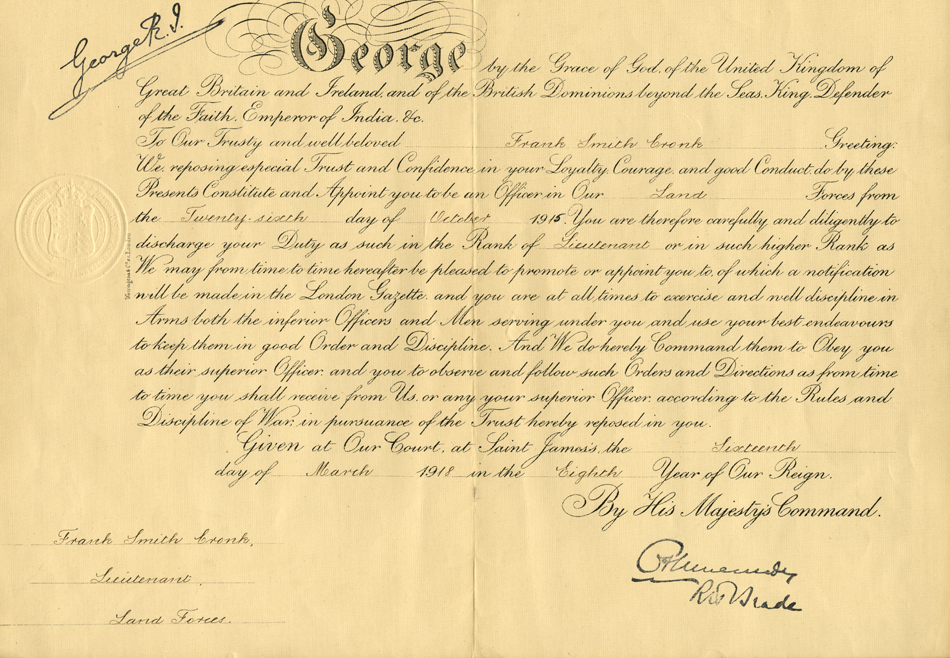 George R.I.
George by the Grace of God, of the United Kingdom of
Great Britain and Ireland, and of the British Dominions beyond the Seas, King, Defender
of the Faith, Emperor of India, &c.
To Our Trusty and well beloved Frank Smith Cronk Greeting:
We, reposing especial Trust and Confidence in your Loyalty, Courage, and good Conduct, do by these
Presents Constitute and Appoint you to be an Officer in Our Land Forces from
the Twenty-sixth day of October 1915. You are therefore carefully and diligently to
discharge your Duty as such in the Rank of Lieutenant or in such higher Rank as
We may from time to time hereafter be pleased to promote or appoint you to, of which a notification
will be made in the London Gazette, and you are at all times to exercise and well discipline in
Arms both the inferior Officers and Men serving under you and use your best endeavours
to keep them in good Order and Discipline. And We do hereby Command them to Obey you
as their superior Officer, and you to observe and follow such Orders and Directions as from time
to time you shall receive from Us, or any your superior Officer, according to the Rules and
Discipline of War, in pursuance of the Trust hereby reposed in you.
Given at Our Court, at Saint James's, the Sixteenth
day of March 1918 in the Eighth Year of Our Reign.
By His Majesty's Command.
Frank Smith Cronk,
Lieutenant,
Land Forces.